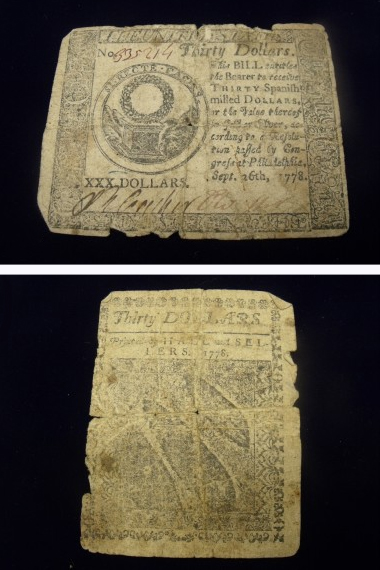 THE UNITED STATES
No. 535214 Thirty Dollars.
This BILL entitles
the Bearer to receive
THIRTY Spanish
milled DOLLARS,
or the Value thereof
in Gold or Silver, ac-
cording to a Resolu-
tion passed by Con-
gress at Philadelphia,
Sept. 26th, 1778.
SI RECTE FACIES
XXX. DOLLARS.
Thirty DOLLARS
Printed HALL and SEL-
LERS. 1778.